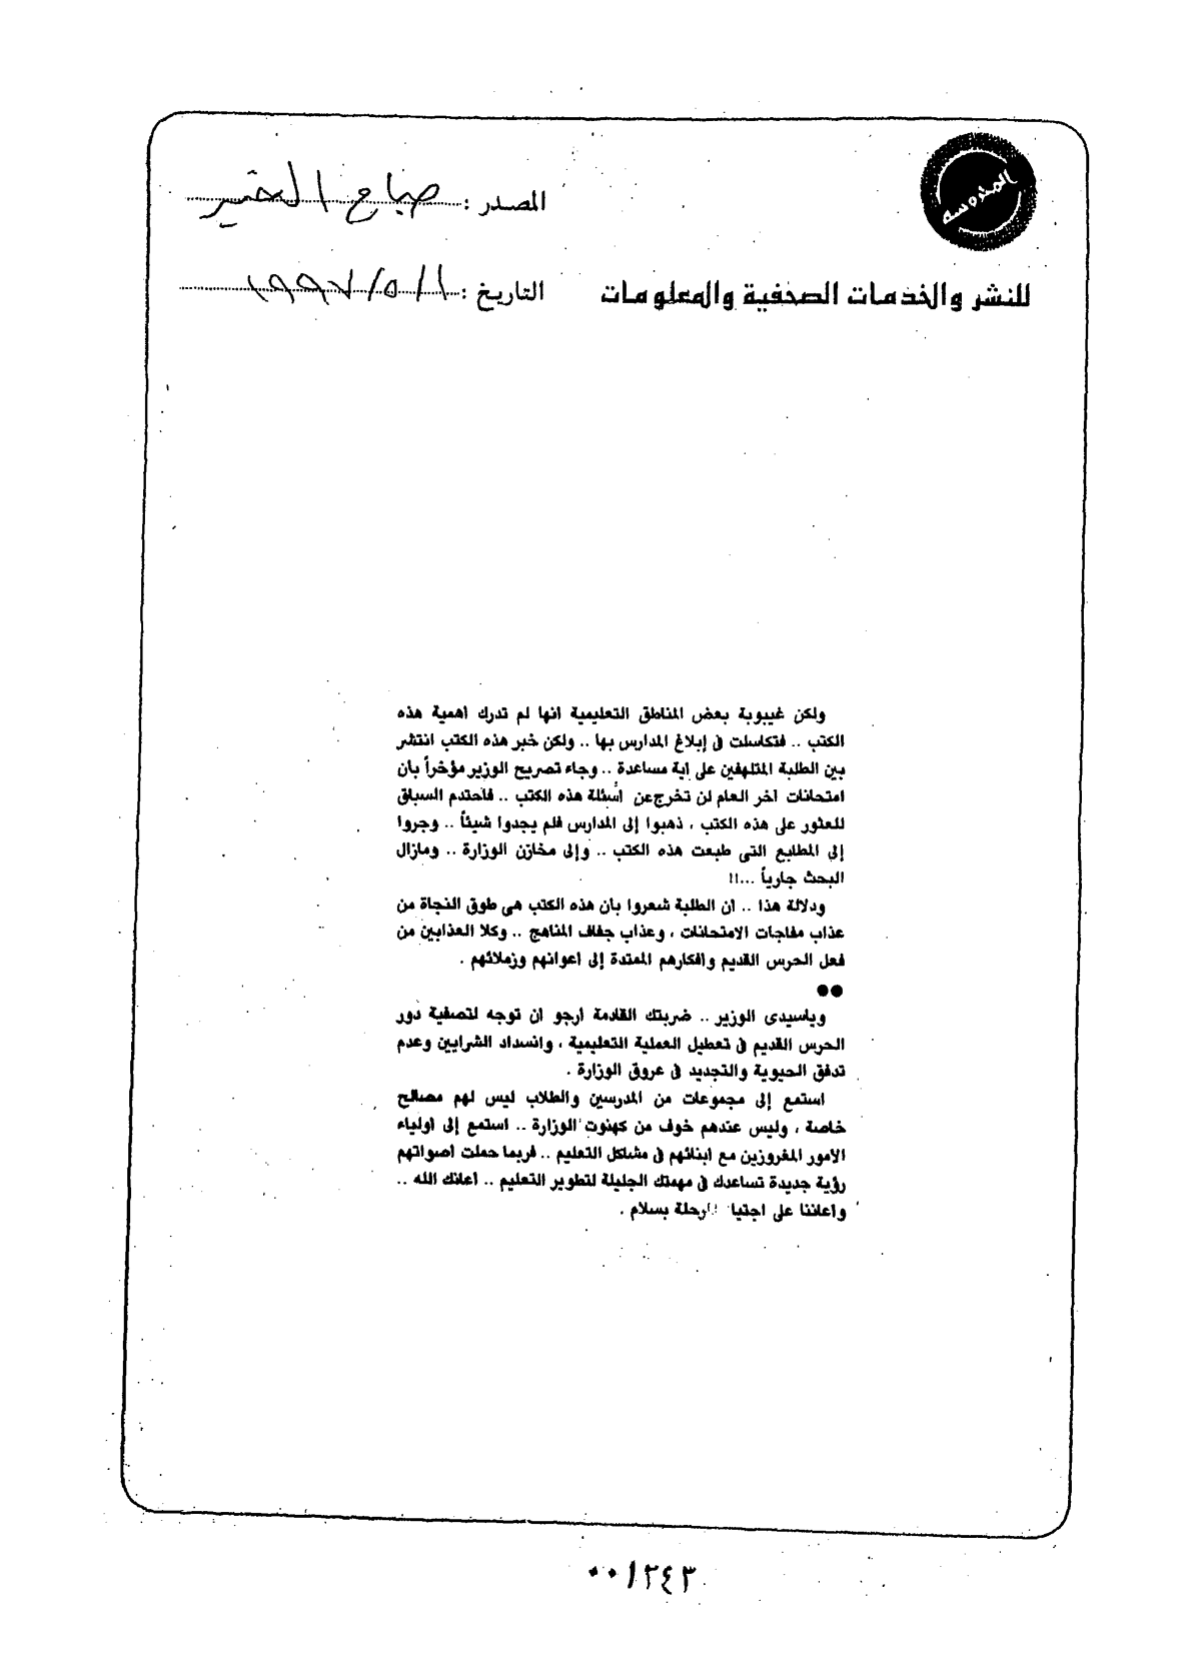 المحروسة
المصدر : صباح الخير
للنشر والخدمات الصحفية والمعلومات
التاريخ : ١ / ٥ / ١٩٩٧
ولكن غيبوبة بعض المناطق التعليمية انها لم تدرك اهمية هذه
الكتب .. فتكاسلت فى إبلاغ المدارس بها .. ولكن خبر هذه الكتب انتشر
بين الطلبة المتلهفين على اية مساعدة .. وجاء تصريح الوزير مؤخراً بان
امتحانات آخر العام لن تخرج عن أسئلة هذه الكتب .. فاحتدم السباق
للعثور على هذه الكتب ، ذهبوا إلى المدارس فلم يجدوا شيئاً .. وجروا
إلى المطابع التى طبعت هذه الكتب .. وإلى مخازن الوزارة .. ومازال
البحث جارياً ...!!
ودلالة هذا .. ان الطلبة شعروا بان هذه الكتب هى طوق النجاة من
عذاب مفاجات الامتحانات ، وعذاب جفاف المناهج .. وكلا العذابين من
فعل الحرس القديم وأفكارهم الممتدة إلى اعوانهم وزملائهم .
●●
وياسيدى الوزير .. ضربتك القادمة ارجو ان توجه لتصفية دور
الحرس القديم فى تعطيل العملية التعليمية ، وانسداد الشرايين وعدم
تدفق الحيوية والتجديد فى عروق الوزارة .
استمع إلى مجموعات من المدرسين والطلاب ليس لهم مصالح
خاصة ، وليس عندهم خوف من كهنوت الوزارة .. استمع إلى اولياء
الامور المغروزين مع ابنائهم فى مشاكل التعليم .. فربما حملت اصواتهم
رؤية جديدة تساعدك فى مهمتك الجليلة لتطوير التعليم .. اعانك الله ..
واعاننا على بسلام .
٠٠١٢٤٣